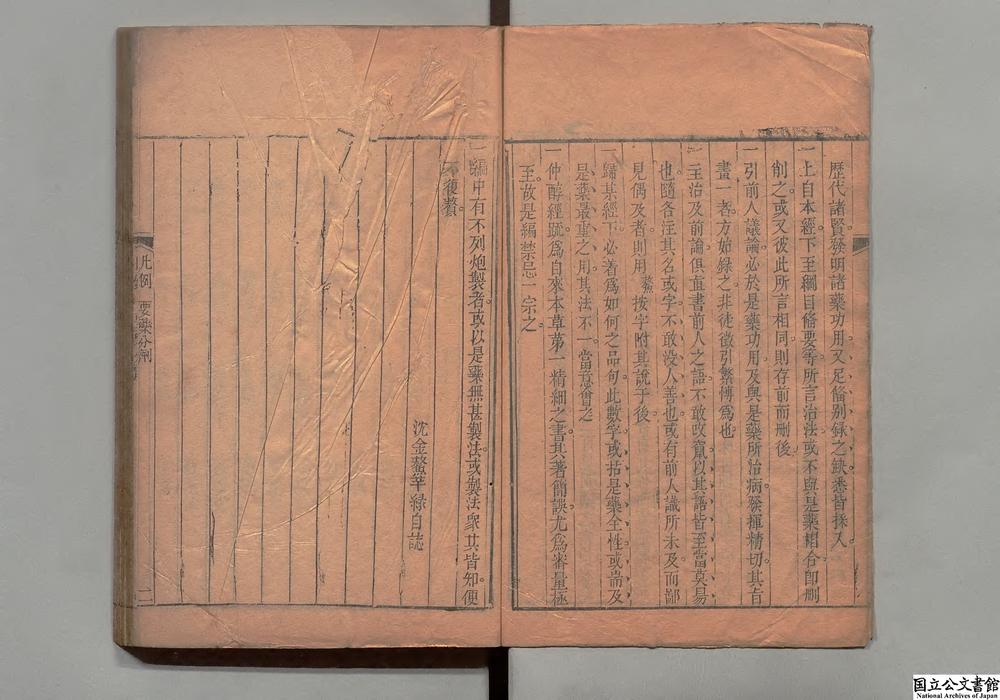 歷代諸賢發明諸藥功用又足俻别錄之缺悉皆採入
一上自本經下至綱目俻要等所言治法或不與是藥相合卽刪
削之或又彼此所言相同則存前而刪後
一引前人議論必於是藥功用及與是藥所治病發揮精切其旨
畫一者方始錄之非徒徵引繁博爲也
一主治及前論俱直書前人之語不敢攺竄以其語皆至當莫易
也隨各注其名或字不敢没人善也或有前人議所未及而鄙
見偶及者則用鰲按字附其說于後
一歸某經下必著爲如何之品句此數字或括是藥全性或耑及
是藥最重之用其法不一當意會之
一仲醇經疏爲自來本草苐一精細之書其著簡誤尤爲審量極
至故是編禁忌一宗之
一編中有不列炮製者或以是藥無甚製法或製法衆其皆知便
不復贅
沈金鰲芊綠自誌
凡例
要藥分劑
二
国立公文書館
National Archives of Japan